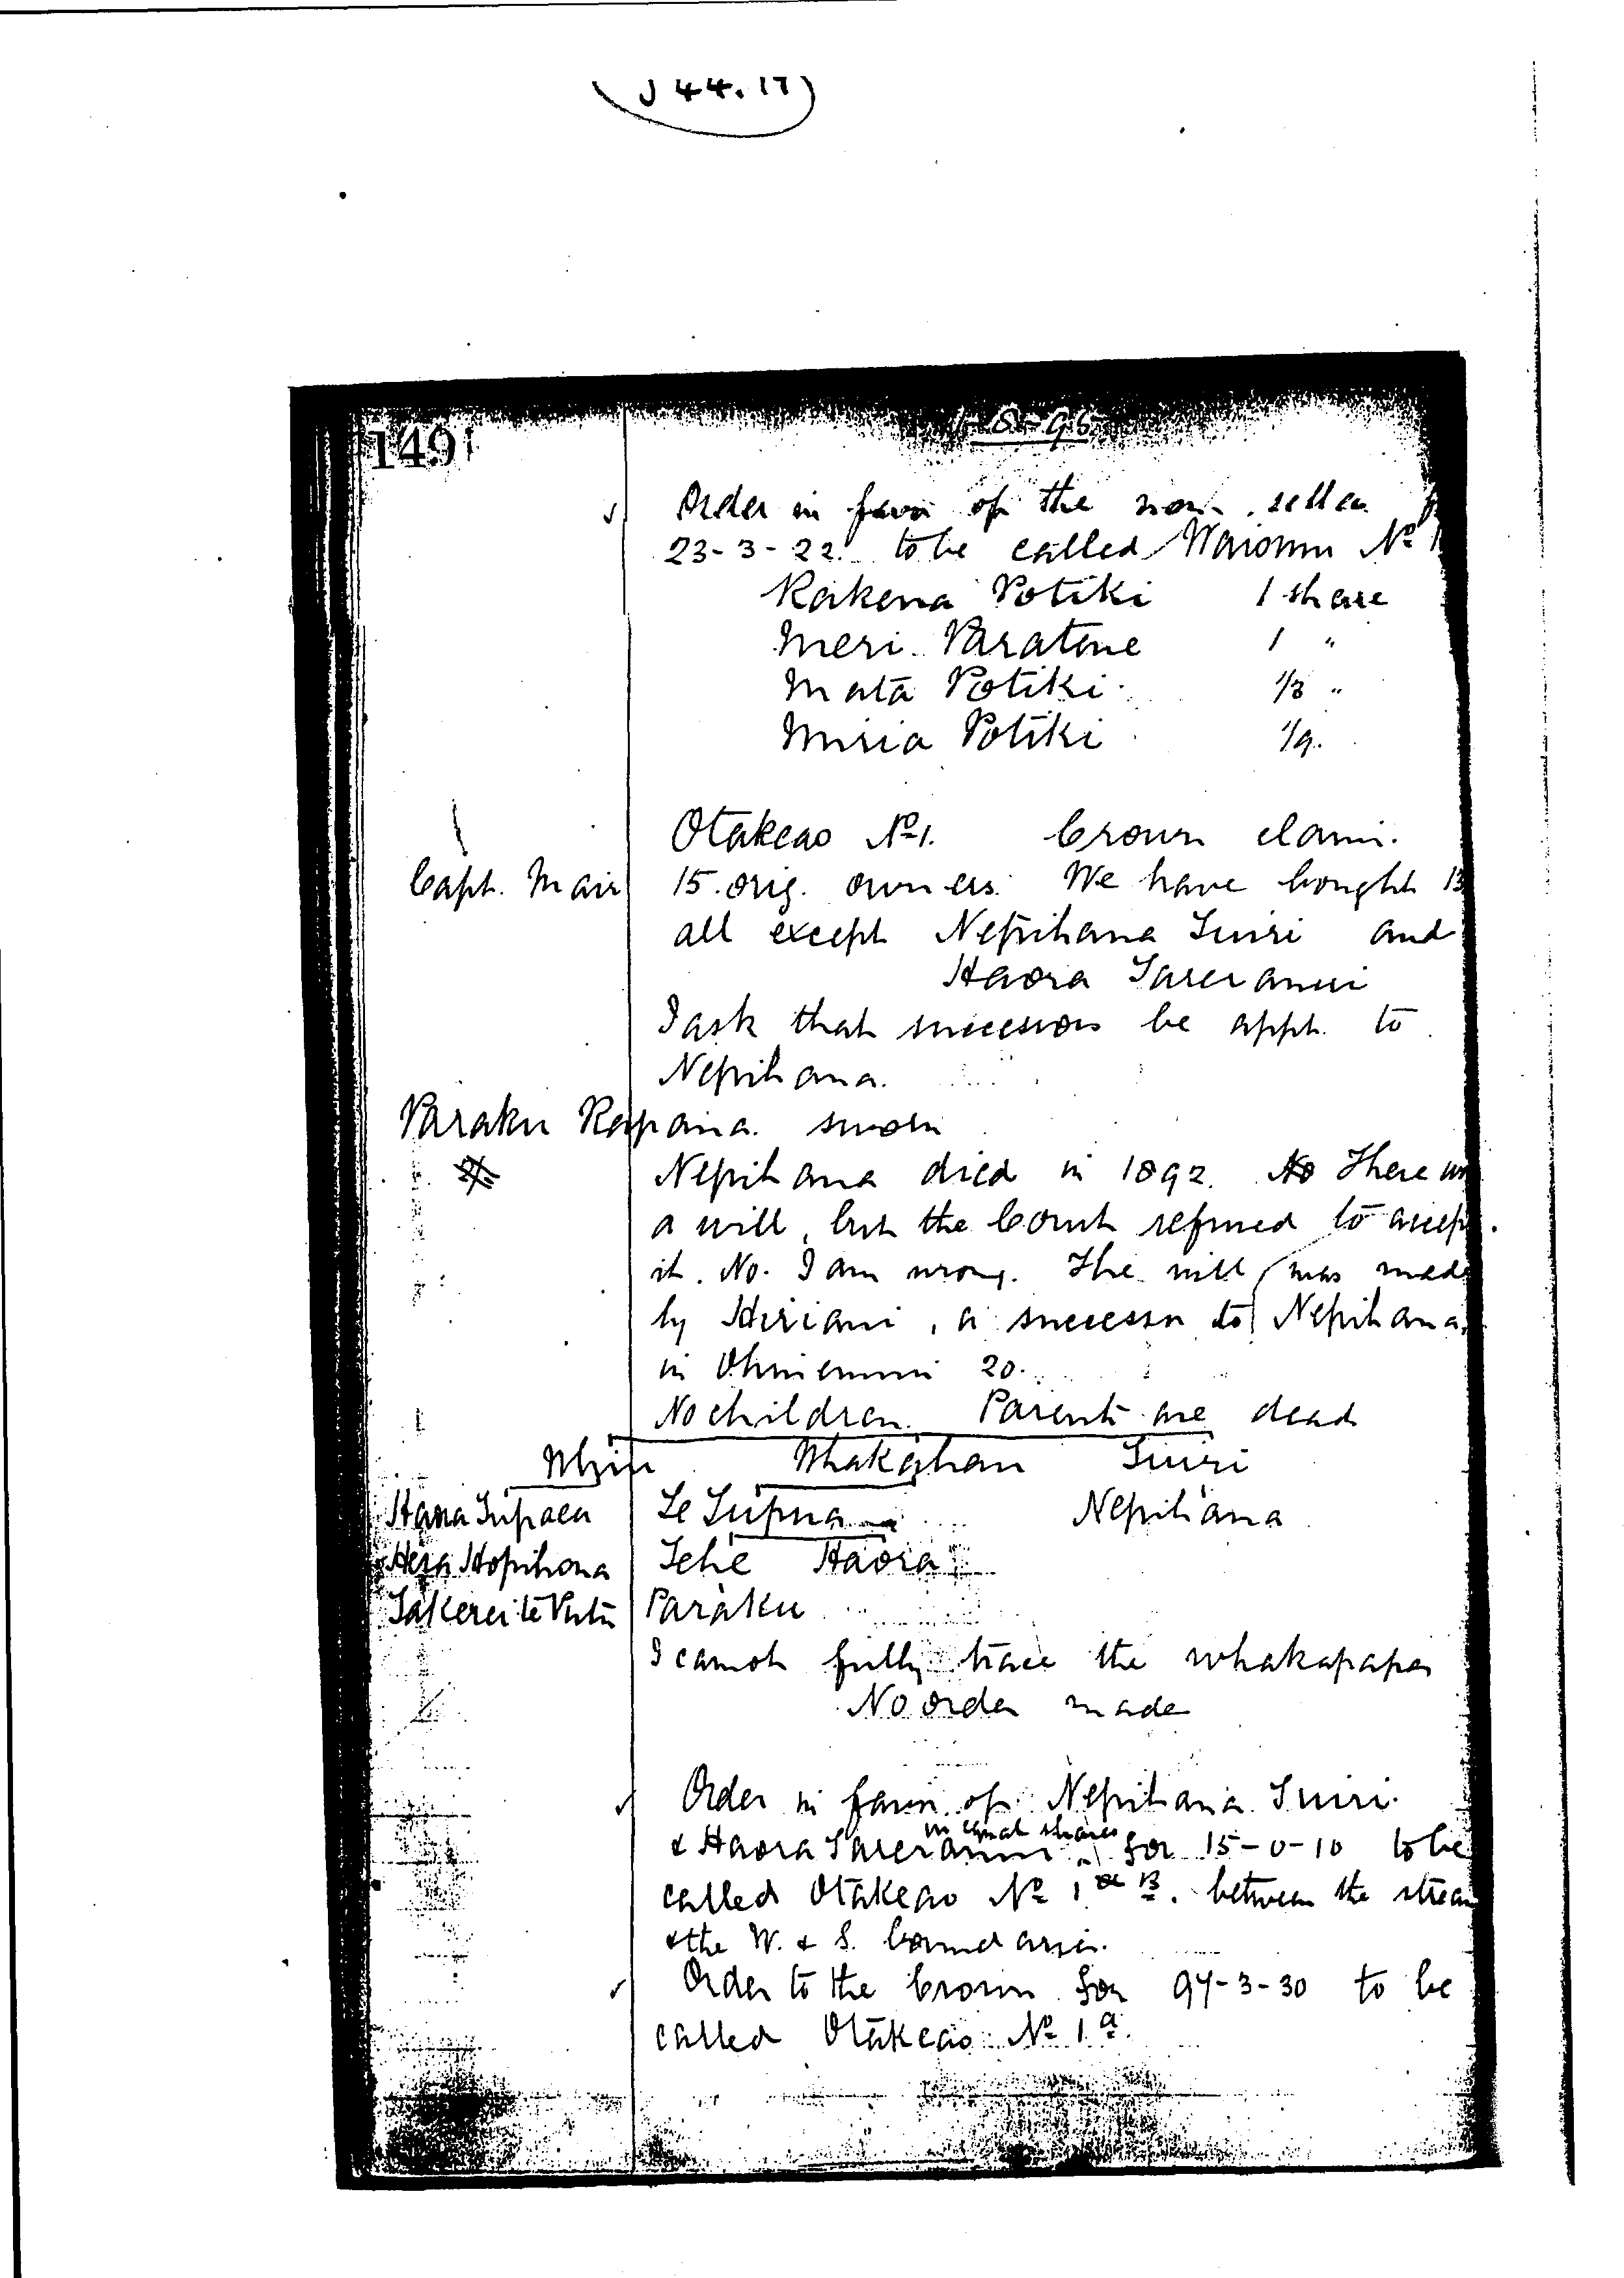 J 44.17
149
8-95
Order in favor of the non-seller
23-3-22 to be called Waiomu No 1
Rakena Potiki 1 share
Meri Paratene 1 "
Mata Potiki 1/3 "
Miria Potiki 1/9
Otakeao No 1. Crown claim.
Capt. Mair 15 orig. owners. We have bought 13
all except Nepihana Tuiri and
Haora Tareranui
I ask that successors be appt. to
Nepihana.
Paraku Rapana sworn
Nepihana died in 1892. No There was
a will, but the Court refused to accept
it. No. I am wrong. The will was made
by Hiriani, a successor to Nepihana
in Ohinemuri 20.
No children. Parents are dead
Whakahau Tuiri
Hana Tupaea Te Tupua Nepihana
Hera Hopihona Tehe Haora
Takerei te Putu Paraku
I cannot fully trace the whakapapa
No order made
Order in favor of Nepihana Tuiri
& Haora Tareranui in equal shares for 15-0-10 to be
called Otakeao No 1 B. between the stream
& the W. & S. boundaries.
Order to the Crown for 97-3-30 to be
called Otakeao No 1a.